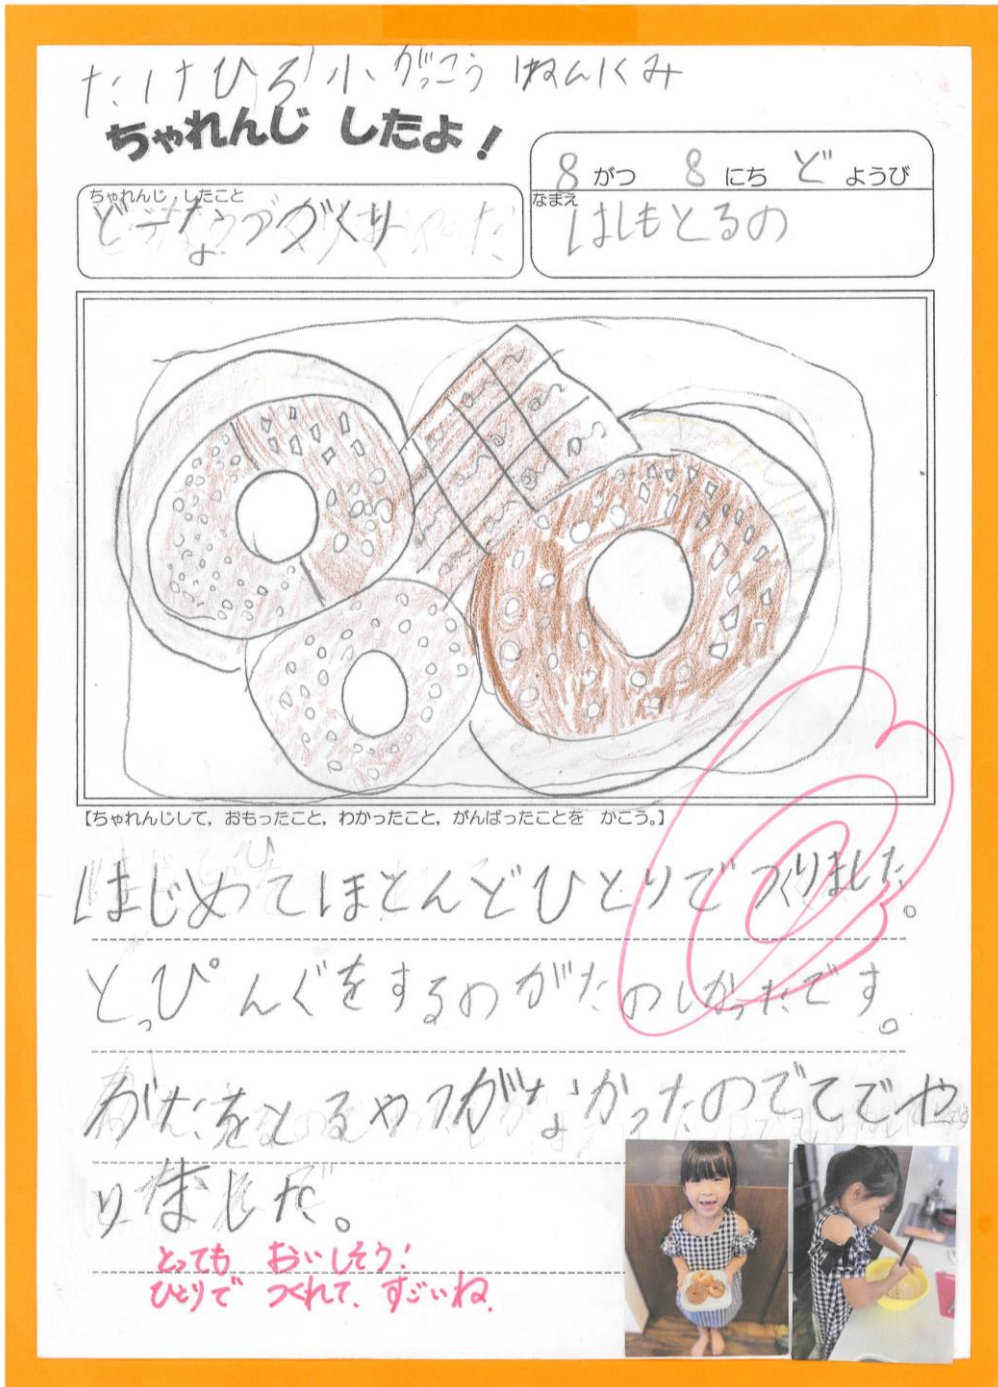 たけひろ小がっこう 1ねん1くみ
ちゃれんじ したよ！
8 がつ 8 にち ど ようび
ちゃれんじ したこと
どーなつづくり
なまえ
はしもとるの
【ちゃれんじして，おもったこと，わかったこと，がんばったことを かこう。】
はじめてほとんどひとりでつくりました。
とっぴんぐをするのがたのしかったです。
がたをとるやつがなかったのでてでや
りました。
とっても おいしそう！
ひとりで つくれて、すごいね。